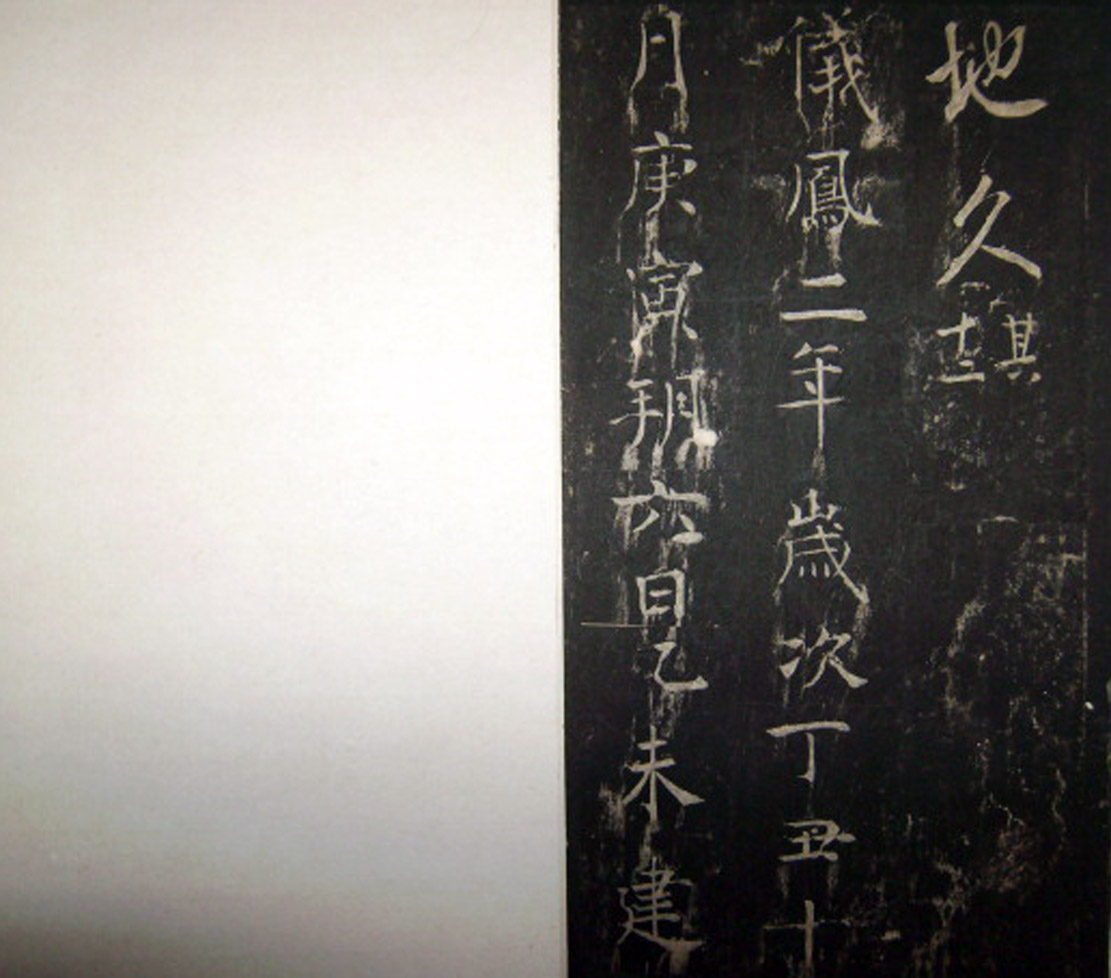 地久其十
儀鳳二年歲次丁丑十
月庚寅朔六日乙未建